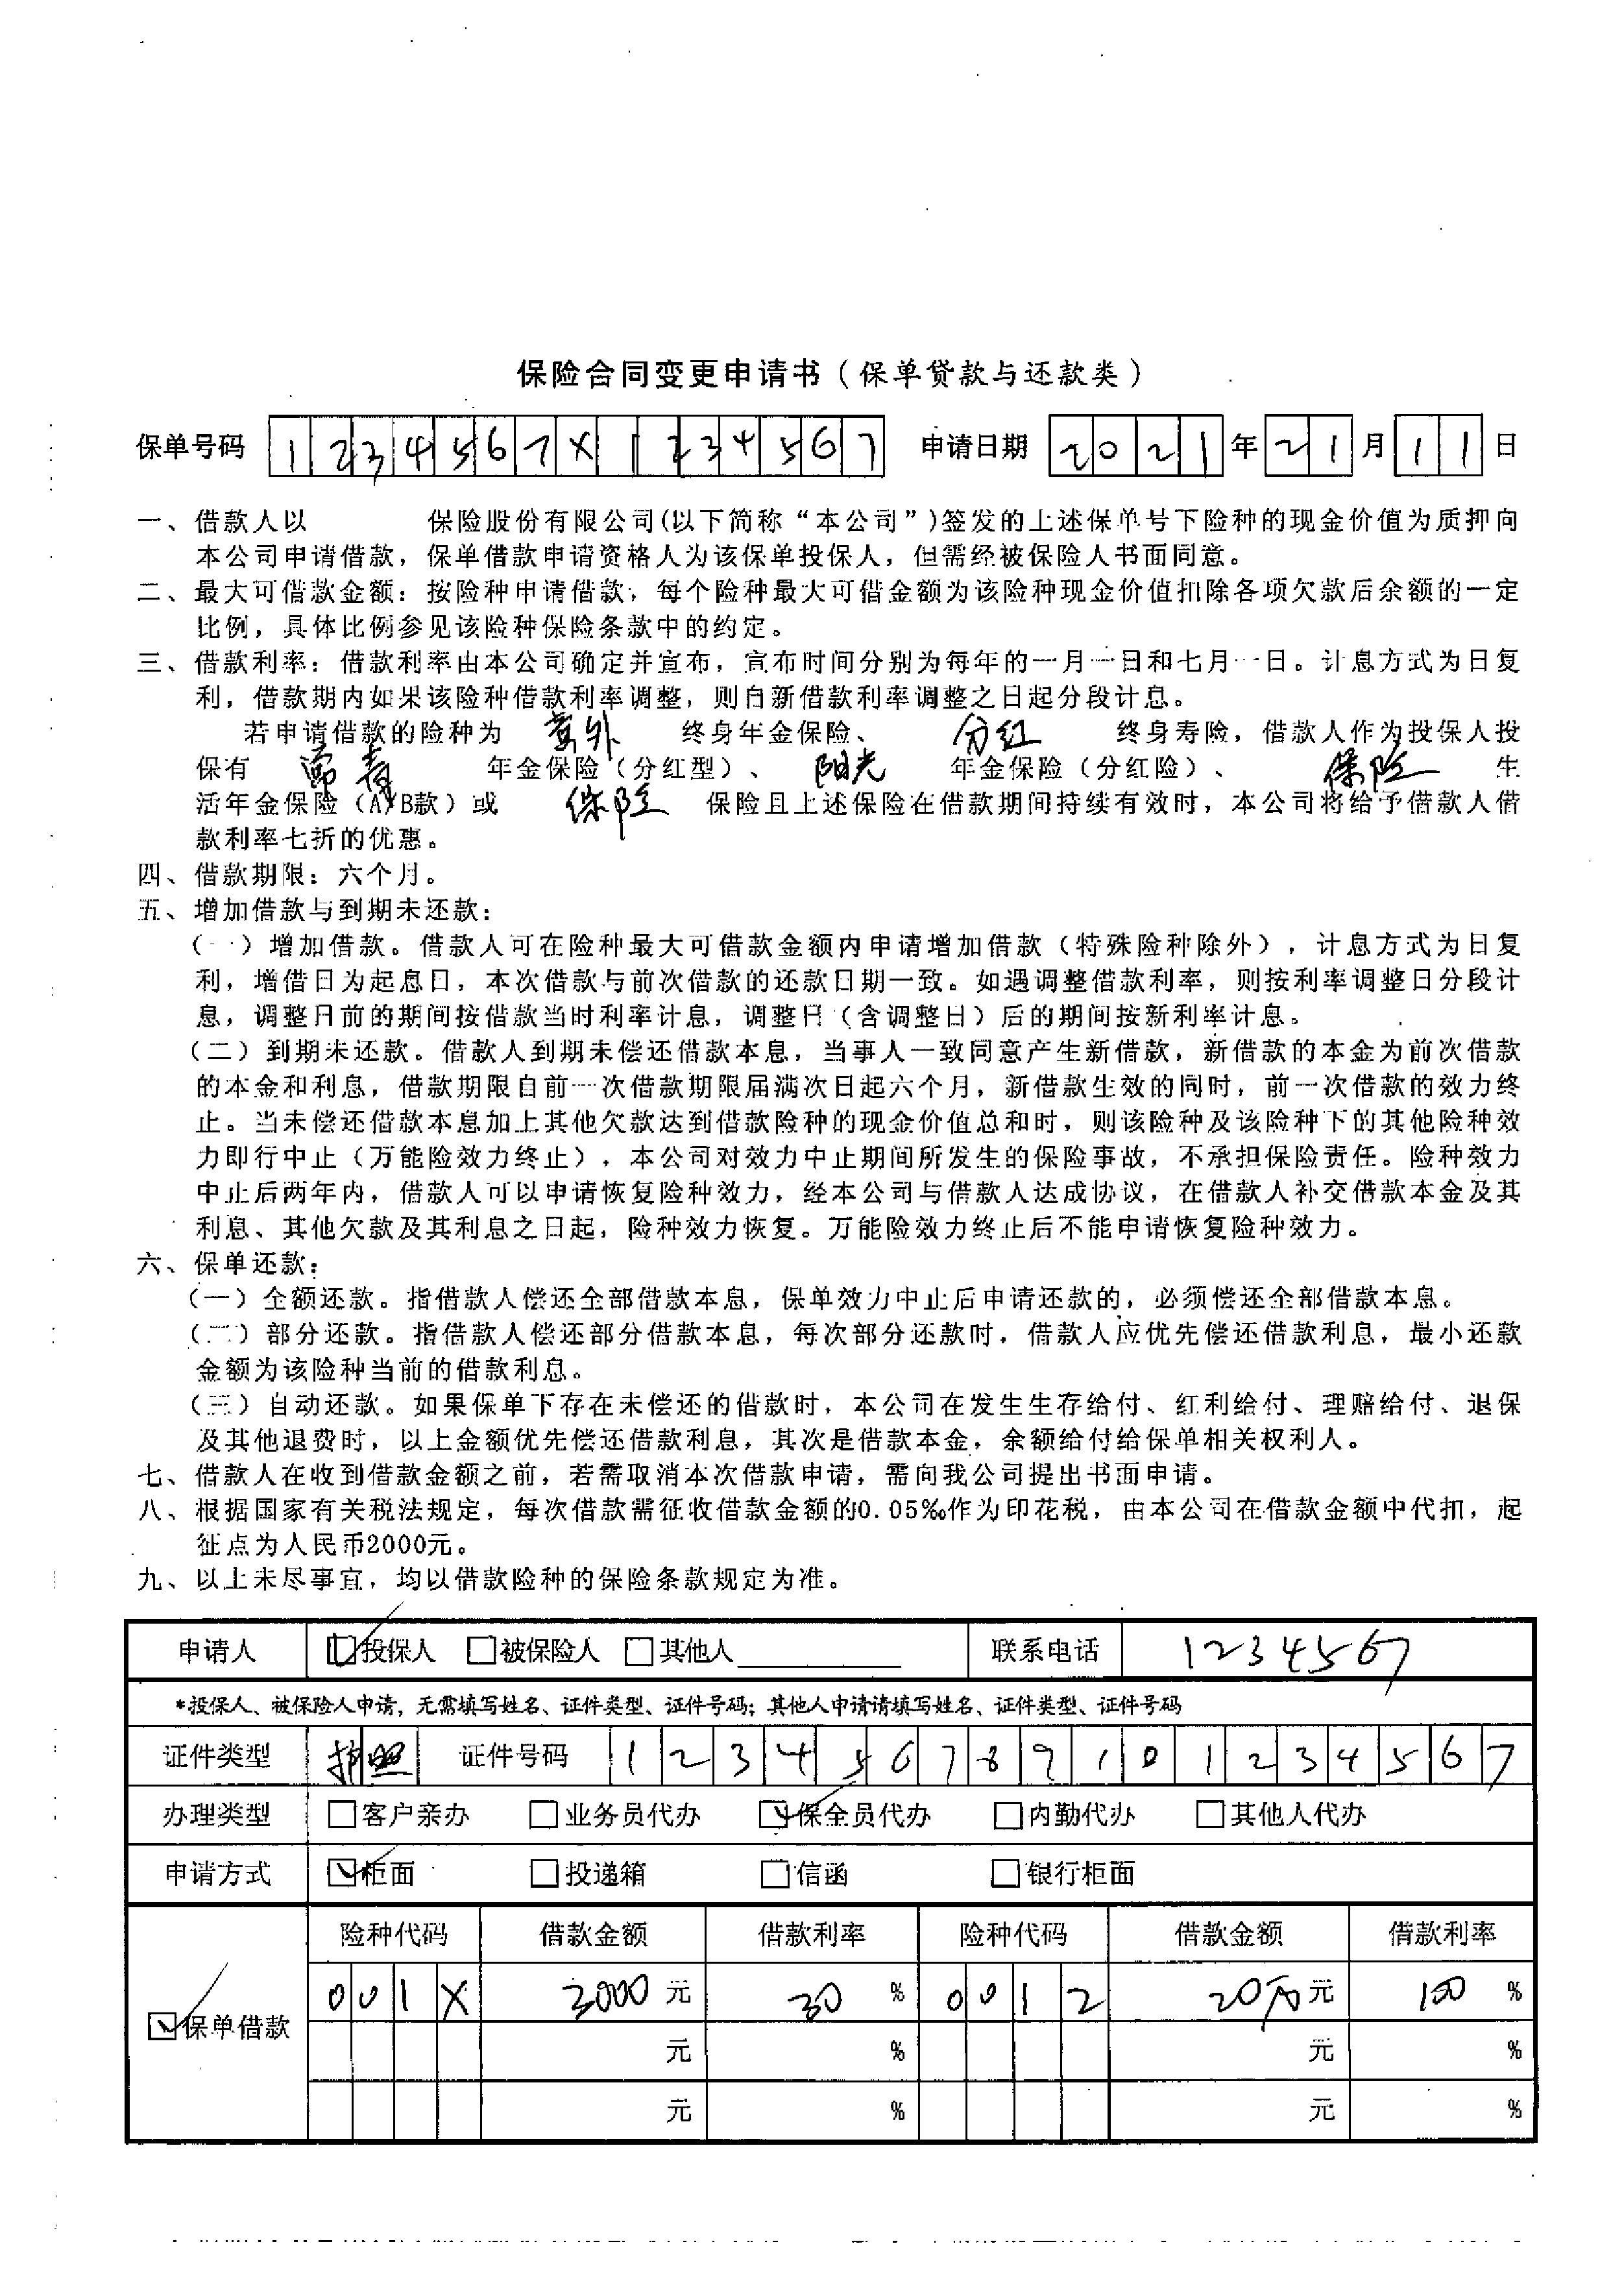 保险合同变更申请书（保单贷款与还款类）
保单号码 1234567X1234567 申请日期 2021年21月11日
一、借款人以 保险股份有限公司(以下简称“本公司”)签发的上述保单号下险种的现金价值为质押向
本公司申请借款，保单借款申请资格人为该保单投保人，但需经被保险人书面同意。
二、最大可借款金额：按险种申请借款，每个险种最大可借金额为该险种现金价值扣除各项欠款后余额的一定
比例，具体比例参见该险种保险条款中的约定。
三、借款利率：借款利率由本公司确定并宣布，宣布时间分别为每年的一月一日和七月一日。计息方式为日复
利，借款期内如果该险种借款利率调整，则自新借款利率调整之日起分段计息。
若申请借款的险种为 意外 终身年金保险、 分红 终身寿险，借款人作为投保人投
保有 常青 年金保险（分红型）、 阳光 年金保险（分红险）、 保险 生
活年金保险（A/B款）或 保险 保险且上述保险在借款期间持续有效时，本公司将给予借款人借
款利率七折的优惠。
四、借款期限：六个月。
五、增加借款与到期未还款：
（一）增加借款。借款人可在险种最大可借款金额内申请增加借款（特殊险种除外），计息方式为日复
利，增借日为起息日，本次借款与前次借款的还款日期一致。如遇调整借款利率，则按利率调整日分段计
息，调整日前的期间按借款当时利率计息，调整日（含调整日）后的期间按新利率计息。
（二）到期未还款。借款人到期未偿还借款本息，当事人一致同意产生新借款，新借款的本金为前次借款
的本金和利息，借款期限自前一次借款期限届满次日起六个月，新借款生效的同时，前一次借款的效力终
止。当未偿还借款本息加上其他欠款达到借款险种的现金价值总和时，则该险种及该险种下的其他险种效
力即行中止（万能险效力终止），本公司对效力中止期间所发生的保险事故，不承担保险责任。险种效力
中止后两年内，借款人可以申请恢复险种效力，经本公司与借款人达成协议，在借款人补交借款本金及其
利息、其他欠款及其利息之日起，险种效力恢复。万能险效力终止后不能申请恢复险种效力。
六、保单还款：
（一）全额还款。指借款人偿还全部借款本息，保单效力中止后申请还款的，必须偿还全部借款本息。
（二）部分还款。指借款人偿还部分借款本息，每次部分还款时，借款人应优先偿还借款利息，最小还款
金额为该险种当前的借款利息。
（三）自动还款。如果保单下存在未偿还的借款时，本公司在发生生存给付、红利给付、理赔给付、退保
及其他退费时，以上金额优先偿还借款利息，其次是借款本金，余额给付给保单相关权利人。
七、借款人在收到借款金额之前，若需取消本次借款申请，需向我公司提出书面申请。
八、根据国家有关税法规定，每次借款需征收借款金额的0.05‰作为印花税，由本公司在借款金额中代扣，起
征点为人民币2000元。
九、以上未尽事宜，均以借款险种的保险条款规定为准。
申请人 ☑投保人 □被保险人 □其他人________ 联系电话 1234567
*投保人、被保险人申请，无需填写姓名、证件类型、证件号码；其他人申请请填写姓名、证件类型、证件号码
证件类型 护照 证件号码 123456789101234567
办理类型 □客户亲办 □业务员代办 ☑保全员代办 □内勤代办 □其他人代办
申请方式 ☑柜面 □投递箱 □信函 □银行柜面
险种代码 借款金额 借款利率 险种代码 借款金额 借款利率
001X 3000元 30% 0012 20万元 100%
☑保单借款
元 % 元 %
元 % 元 %